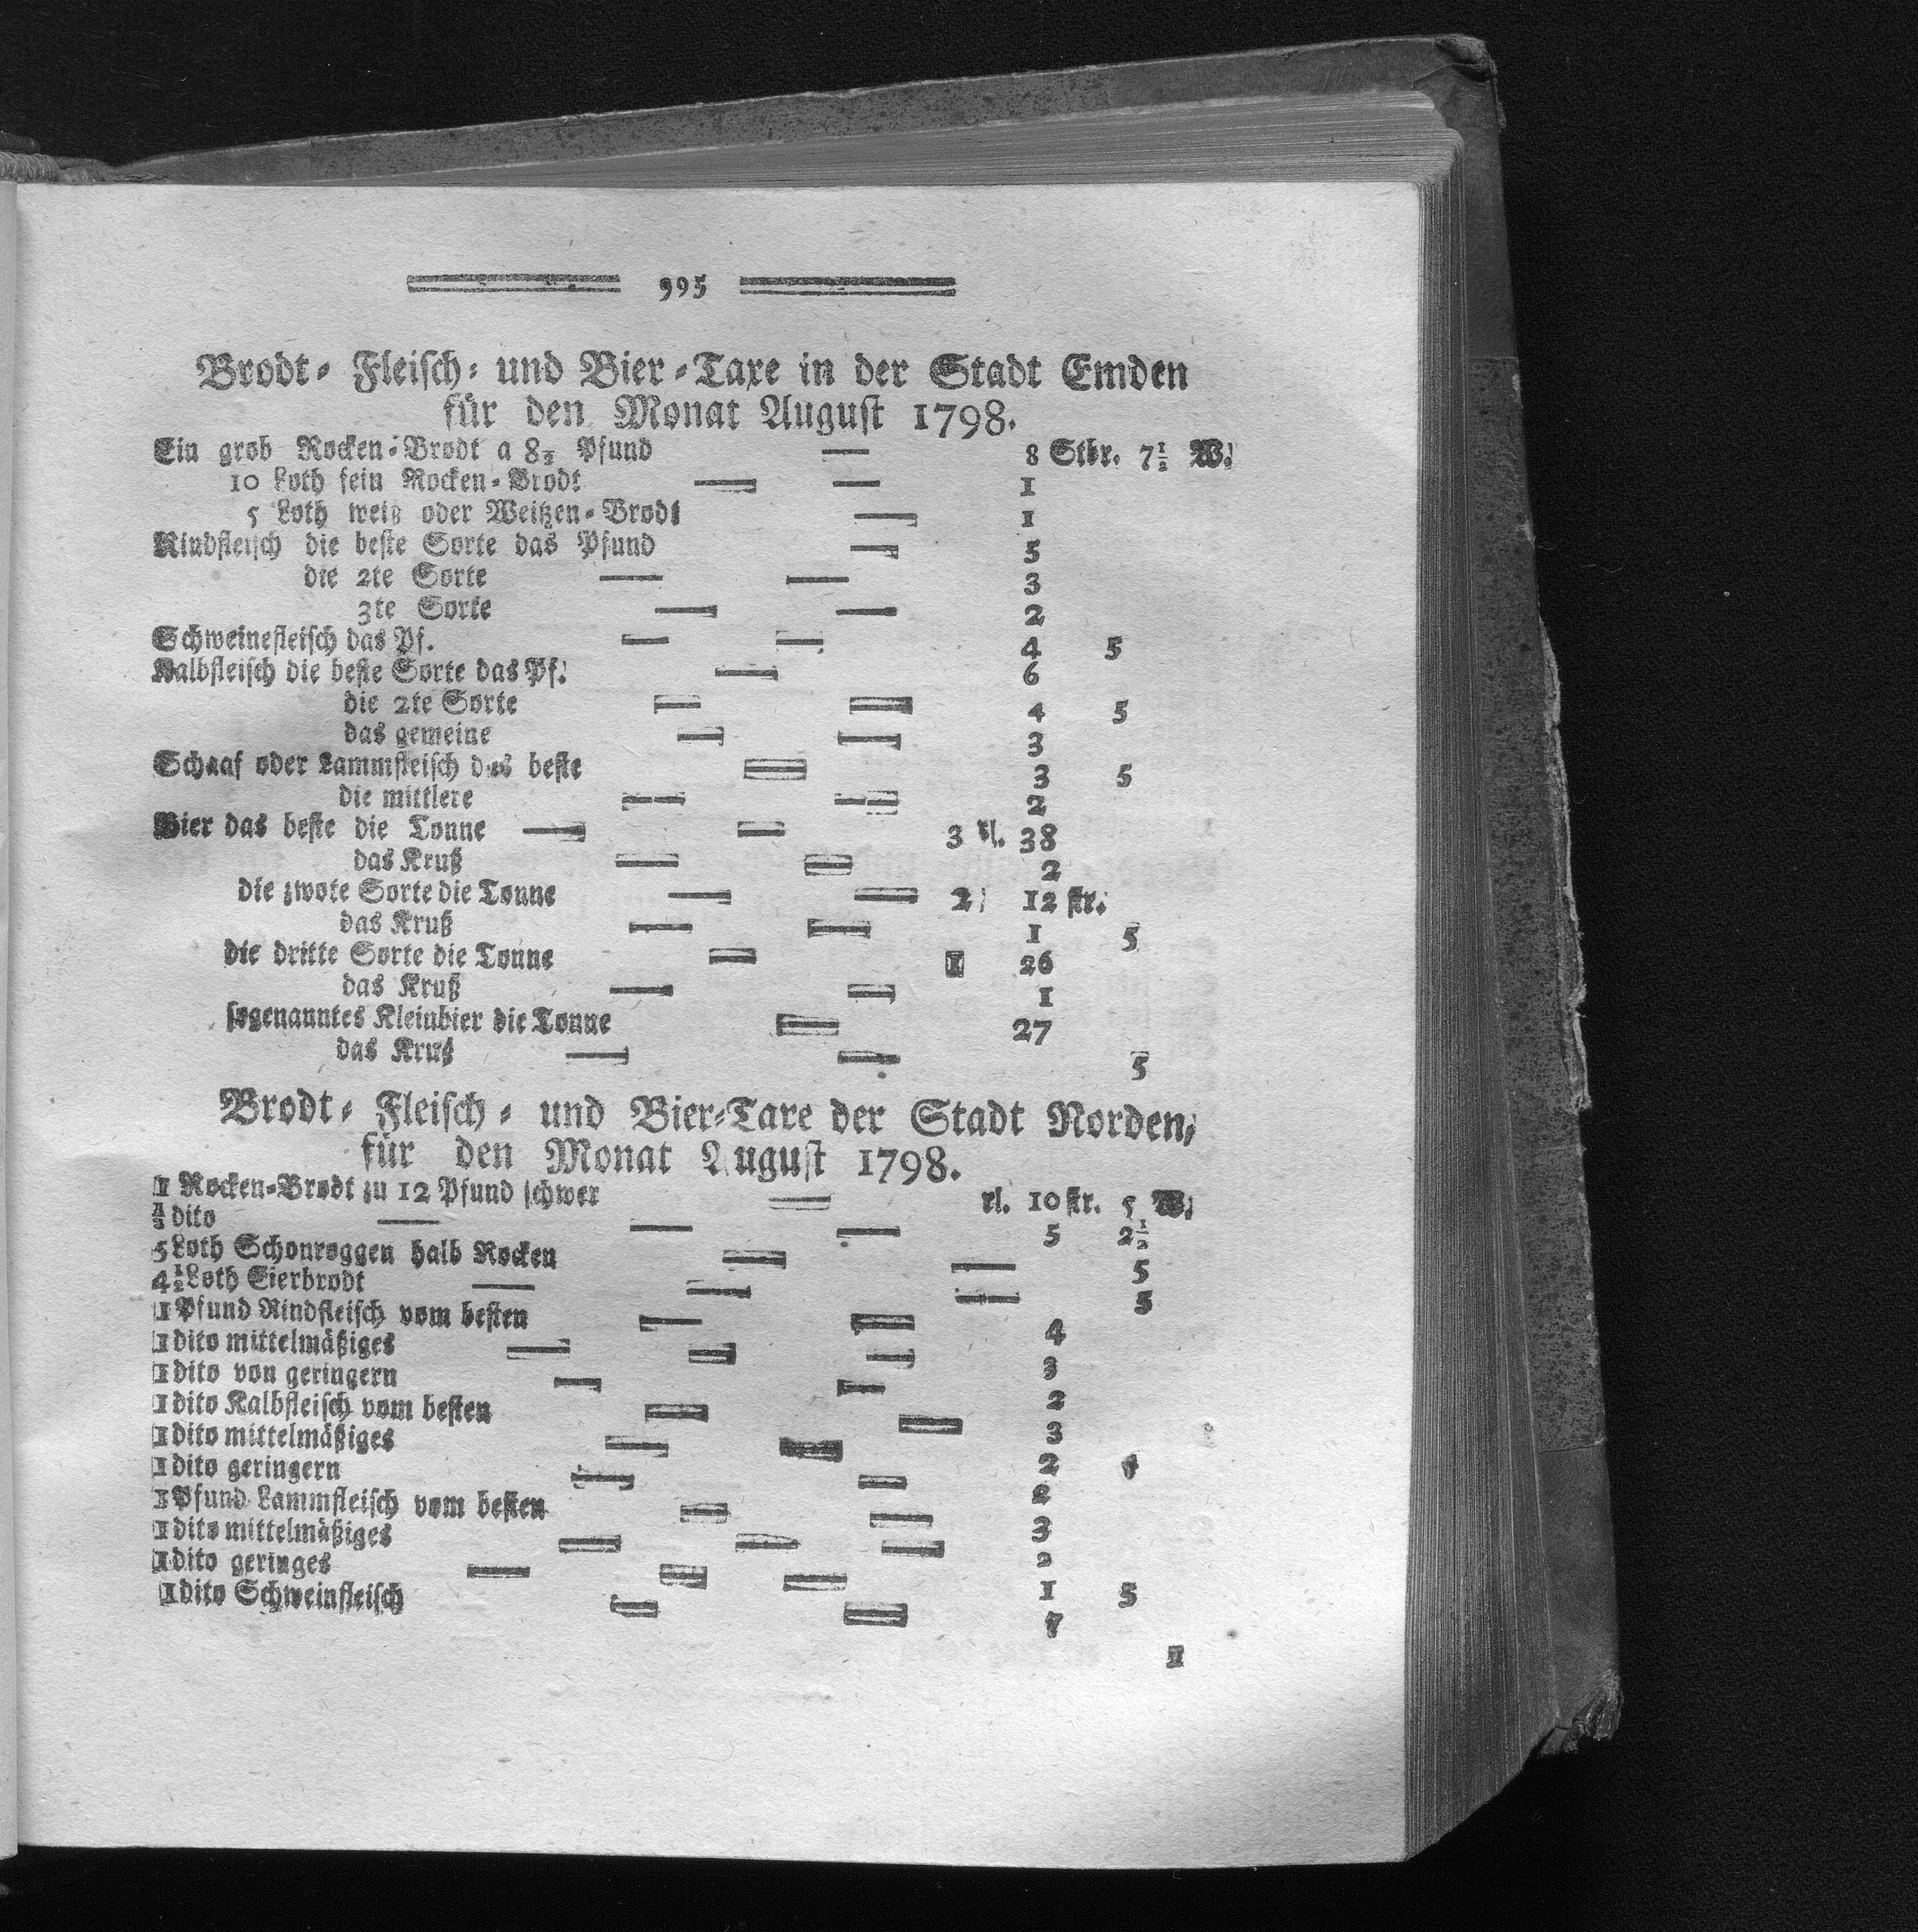 995
Brodt- Fleisch- und Bier-Taxe in der Stadt Emden
für den Monat August 1798.
Ein grob Rocken-Brodt a 8½ Pfund — 8 Stbr. 7½ W.
10 Loth fein Rocken-Brodt — — 1
5 Loth weiß oder Weitzen-Brodt — 1
Rindfleisch die beste Sorte das Pfund — 5
die 2te Sorte — — 3
3te Sorte — — 2
Schweinefleisch das Pf. — — 4 5
Kalbfleisch die beste Sorte das Pf. — 6
die 2te Sorte — — 4 5
das gemeine — — 3
Schaaf oder Lammfleisch das beste — 3 5
die mittlere — — 2
Bier das beste die Tonne — — 3 rl. 38
das Kruß — — 2
die zwote Sorte die Tonne — — 2 12 str.
das Kruß — — 1 5
die dritte Sorte die Tonne — 1 26
das Kruß — — 1
sogenanntes Kleinbier die Tonne — 27
das Kruß — — 5
Brodt- Fleisch- und Bier-Taxe der Stadt Norden,
für den Monat August 1798.
1 Rocken-Brodt zu 12 Pfund schwer — rl. 10 str. 5 W.
½ dito — — — 5 2½
5 Loth Schonroggen halb Rocken — — 5
4½ Loth Eierbrodt — — — 5
1 Pfund Rindfleisch vom besten — — 4
1 dito mittelmäßiges — — — 3
1 dito von geringern — — 2
1 dito Kalbfleisch vom besten — — 3
1 dito mittelmäßiges — — 2
1 dito geringern — — 2
1 Pfund Lammfleisch vom besten — — 3
1 dito mittelmäßiges — — — 2
1 dito geringes — — — 1 5
1 dito Schweinfleisch — —
1